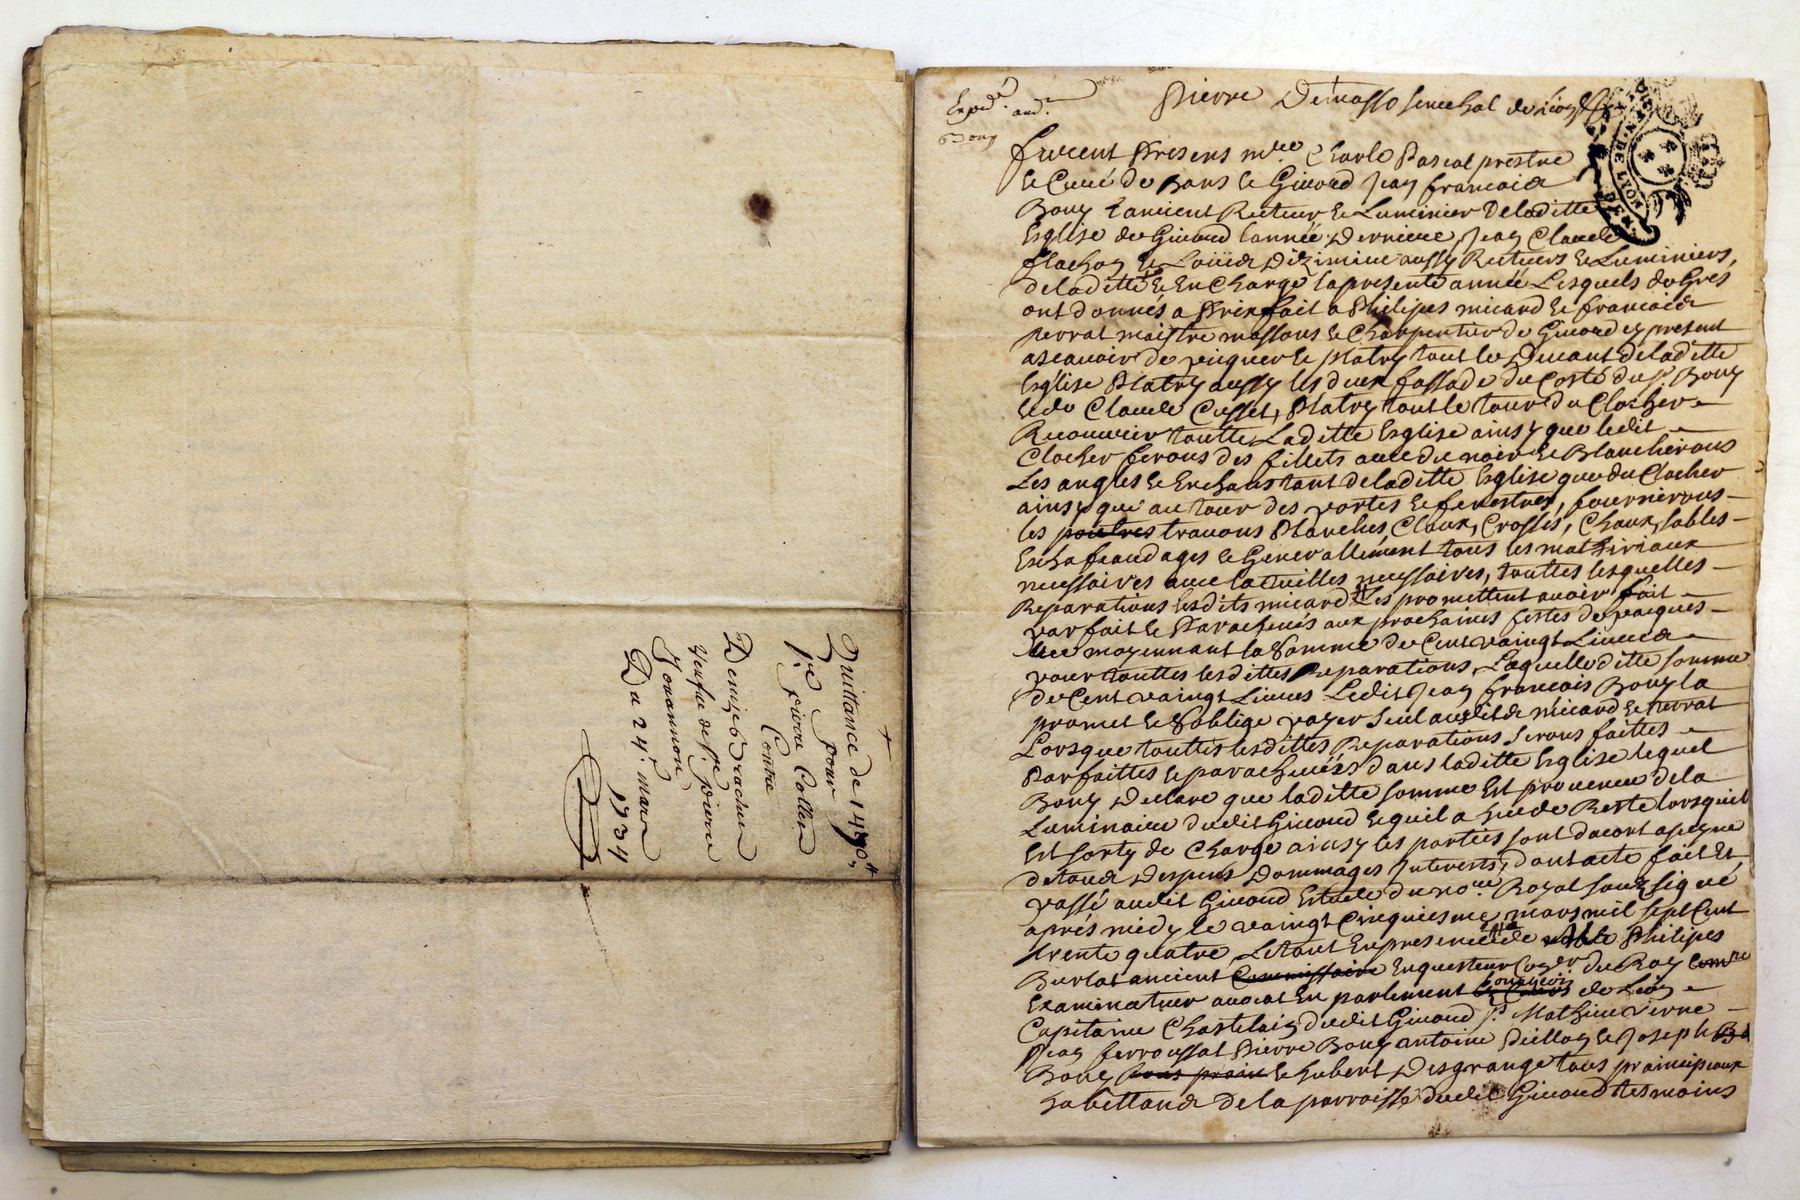 Quittance de 1470#
pour
Sr. pierre Collen
Contre
Denize Brachet
Veufve de Sr. pierre
Jouannon
Du 24e. mars
1734
Expedié. and.e
Bouy
Pierre Demasso senechal de Lion
GEN. DE LION
furent Presens mre. Charle Pascal prestre
& Curé de & Givord Jean francois
Bouy L'ancient Recteur & Luminier de laditte
Esglise de Givord L'année Derniere, Jean Claude
flachon & Loüis Dizimieu aussy Recteurs & Luminiers,
de laditte & En Charge la presente année Lesquels de Gres
ont donnés a Prixfait a Philipes micard & francois
perrat maistre massons & Charpentier de Givord ey present
ascavoir de picquer & platry tout le Devant de laditte
Esglise Platry aussy les deux fassade du Costé du Sr. Bouy
& de Claude Cusset, Platry tout le tour du Clocher
Recouvrir toutte Laditte Esglise ainsy que ledit
Clocher ferons des fillets avec du noir & Blanchirons
Les angles & tant de laditte Esglise que du Clocher
ainsy que au tour des portes & fenestres, fournirons
les poultres travons Planches, Cloux, Crosses, Chaux, sables
Eschafeaudages & Generallement tous les mathiriaux
necessaires avec la thuilles necessaires, touttes lesquelles
Reparations lesdits micard promettent avoir fait
parfait & Parachevés aux prochaines festes de pacques
moyennant la Somme de Cent vaingt Livres
pour touttes lesdittes Reparations, Laquelle ditte somme
de Cent vaingt Livres Ledit Jean francois Bouy la
promet & S'oblige payer seul ausdits micard & Perrat
Lorsque touttes lesdittes Reparations serons faittes
Parfaittes & parachevées dans laditte Esglise lequel
Bouy Declare que laditte somme Est provenue de la
Luminaire dudit Givord & quil a heu de Reste lorsquil
Est sorty de Charge ainsy les parties sont dacort a peyne
de tous Despens Dommages Interests, dont acte fait Et
passé audit Givord Estude du nore. Royal soubzsigné
aprés midy le vaingt Cinquiesme mars mil sept Cent
trente quatre, Estant En presence de noble Philipes
Bertat ancient Commissaire Enquesteur du Roy
Examinateur avocat En parlement bourgeois de Lion
Capitaine Chastelain dudit Givord Sr. Mathieu Verne
Jean ferroussat Pierre Bouy antoine & Joseph
Bouy & hubert Desgrange tous prainsipaux
habittans de la parroisse dudit Givord tesmoins